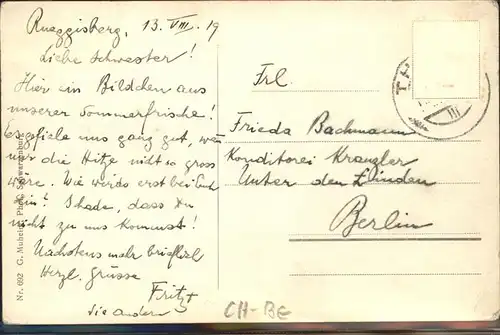 Rueggisberg, 13. VIII. 19
Liebe Schwester!
Hier ein Bildchen aus
unserer Sommerfrische!
Es gefiele uns ganz gut, wenn
nur die Hitze nicht so gross
wäre. Wie wirds erst bei Euch
sein? Schade, dass Du
nicht zu uns kommst!
Nächstens mehr brieflich
Herzl. Grüsse
Fritz +
die andern
Frl.
Frieda Bachmann
Konditorei Kranzler
Unter den Linden
Berlin
CH-BE
Nr. 692 G. Muheim, Phot. Schwarzenburg